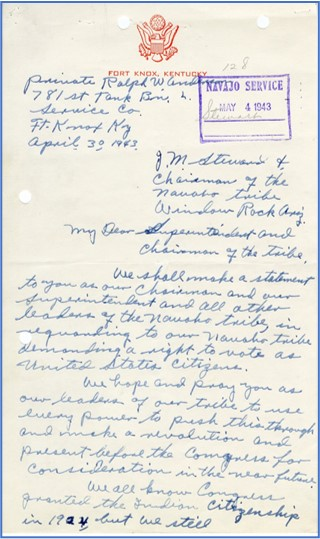 128
FORT KNOX, KENTUCKY
Private Ralph W. Anderson
781st Tank Bn.
Service Co.
Ft. Knox Ky
April 30 1943
NAVAJO SERVICE
MAY 4 1943
J. M. Stewart &
Chairman of the
Navaho tribe
Window Rock Ariz.
My Dear Superintendent and
Chairman of the tribe.
We shall make a statement
to you as our Chairman and our
Superintendent and all other
leaders of the Navaho tribe, in
reguarding to our Navaho tribe
demanding a right to vote as
United States Citizens.
We hope and pray you as
our leaders of our tribe to use
every power to push this through
and make a revolution and
present before the Congress for
consideration in the near future.
We all know Congress
granted the Indian Citizenship
in 1924 but we still